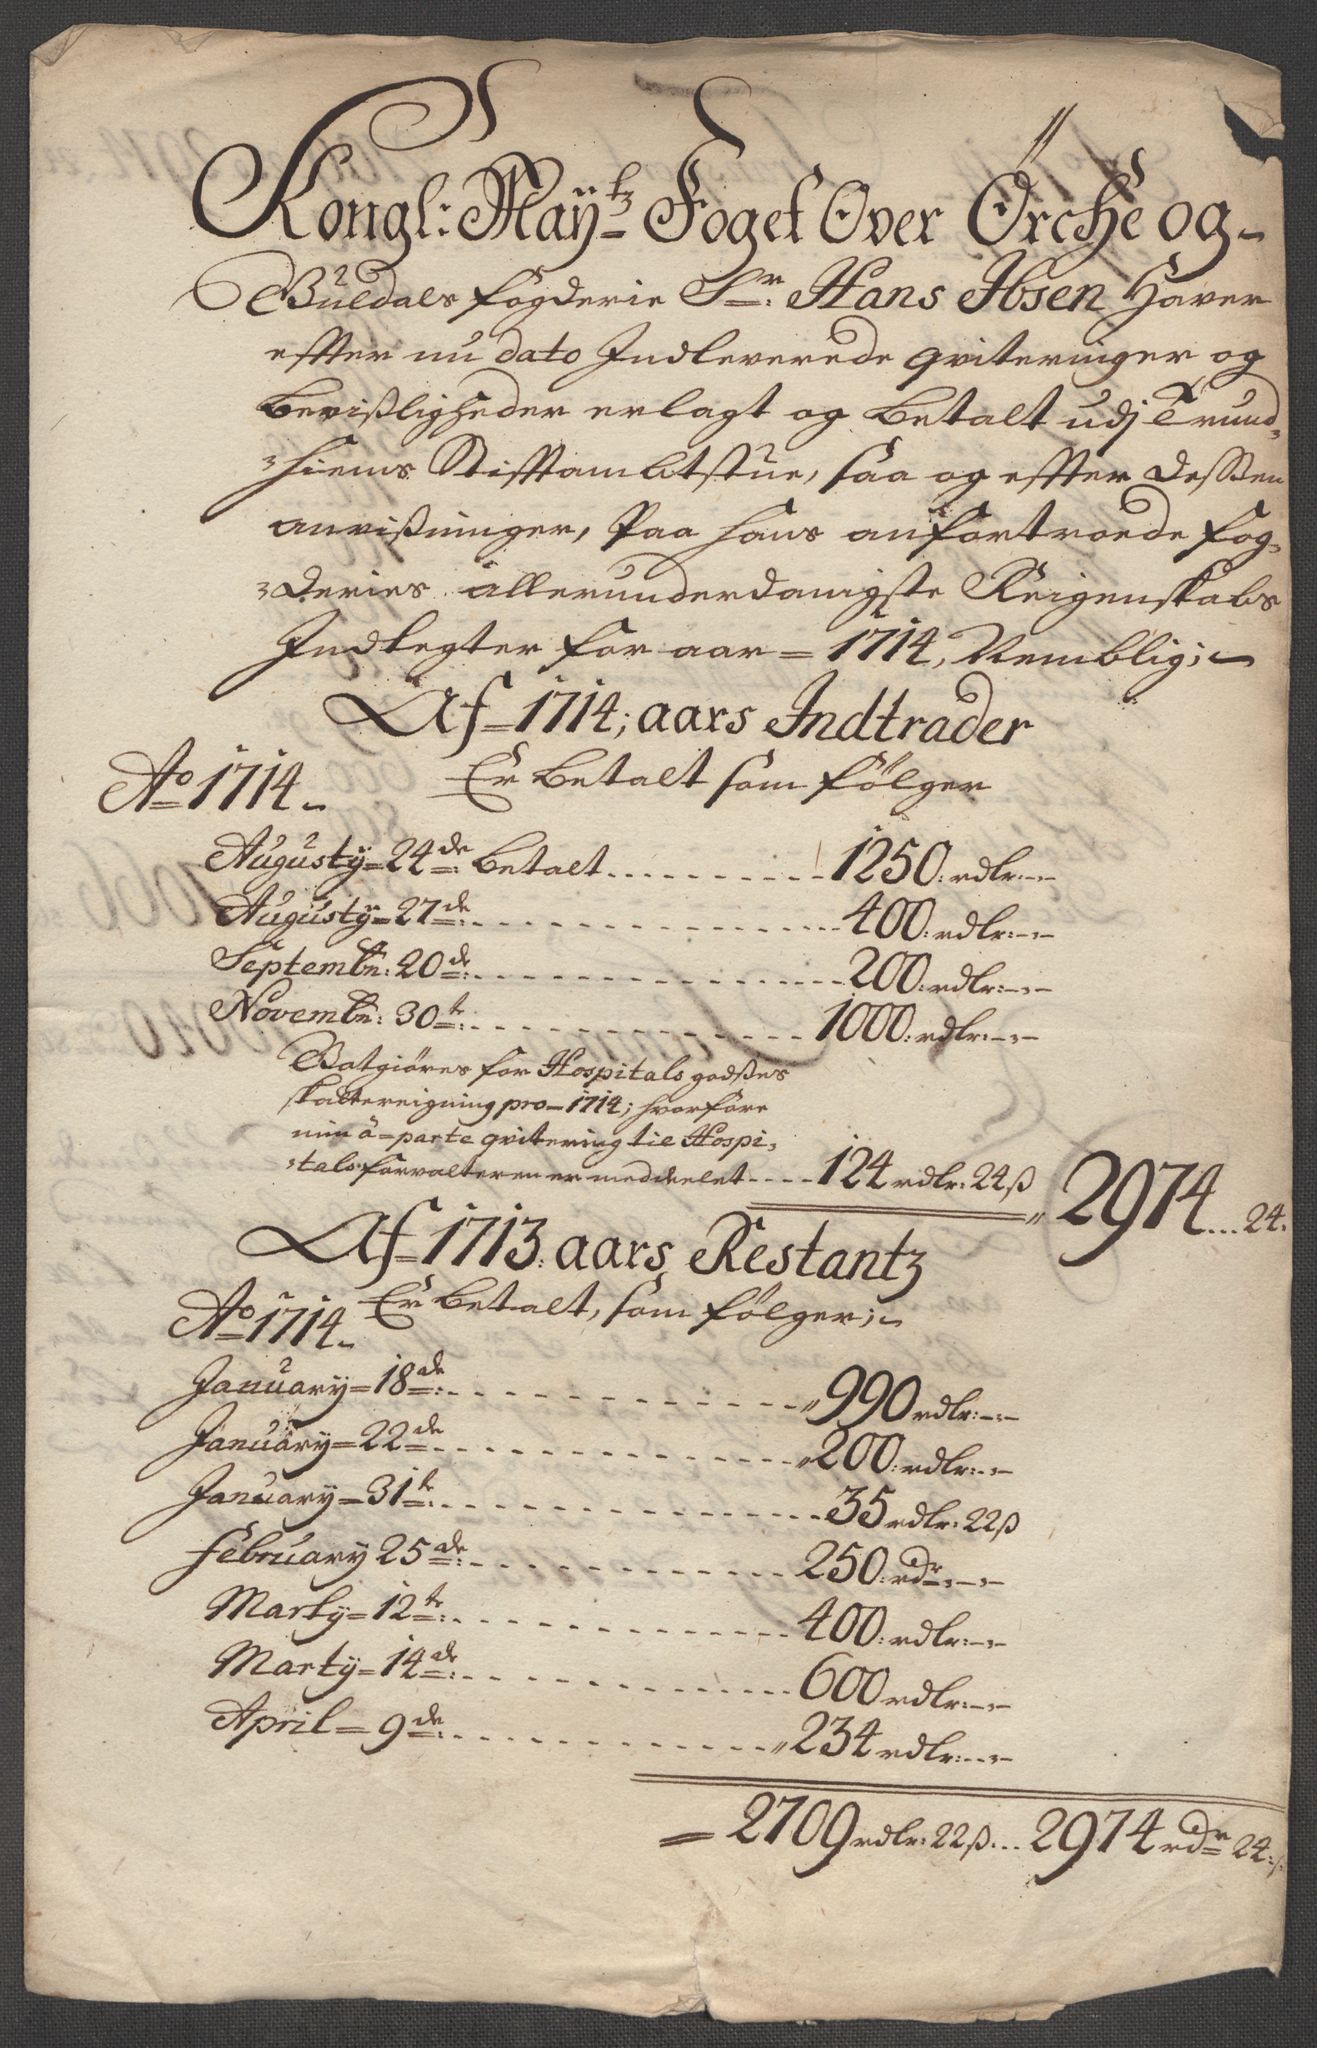 Kongl: May:tz Foget Over Örche og-
Büldals fogderie Sr: Hans Ibsen Haver
effter nu dato Indleverede qviteringer og
bevißligheder erlagt og betalt udj Trund-
hiems Stifftambtstue, saa og effter deßen
anvißninger, Paa hans anfortroede fog-
deries allerunderdanigste Reigenskabs
Indtegter for aar = 1714, Nemblig:
Af = 1714; aars Indtrader
Er betalt som følger
Ao 1714
Augusty = 24de: betalt .......... 1250: rdlr:-:-
Augusty = 27de: .......... 400: rdlr:-:-
Septembr: 20de: .......... 200: rdlr:-:-
Novembr: 30te: .......... 1000: rdlr:-:-
Gotgiøres for Hospitals godßes
skattereigning pro = 1714; hvorføre
min â = parte qvitering til Hospi-
tals forvalteren er meddelet .... 124 rdlr: 24ß 2974... 24.
Af = 1713: aars Restantz
Er betalt, som følger;
Ao 1714
January = 18de: .......... 990 rdlr:-:-
January = 22de: .......... 200: rdlr:-:-
January = 31te: .......... 35 rdlr: 22ß
February 25de: .......... 250: rdr:-:-
Marty = 12te: .......... 400: rdlr:-:-
Marty = 14de: .......... 600 rdlr:-:-
April = 9de: .......... 234 rdlr:-:-
= 2709 rdlr: 22ß... 2974 rdr 24: